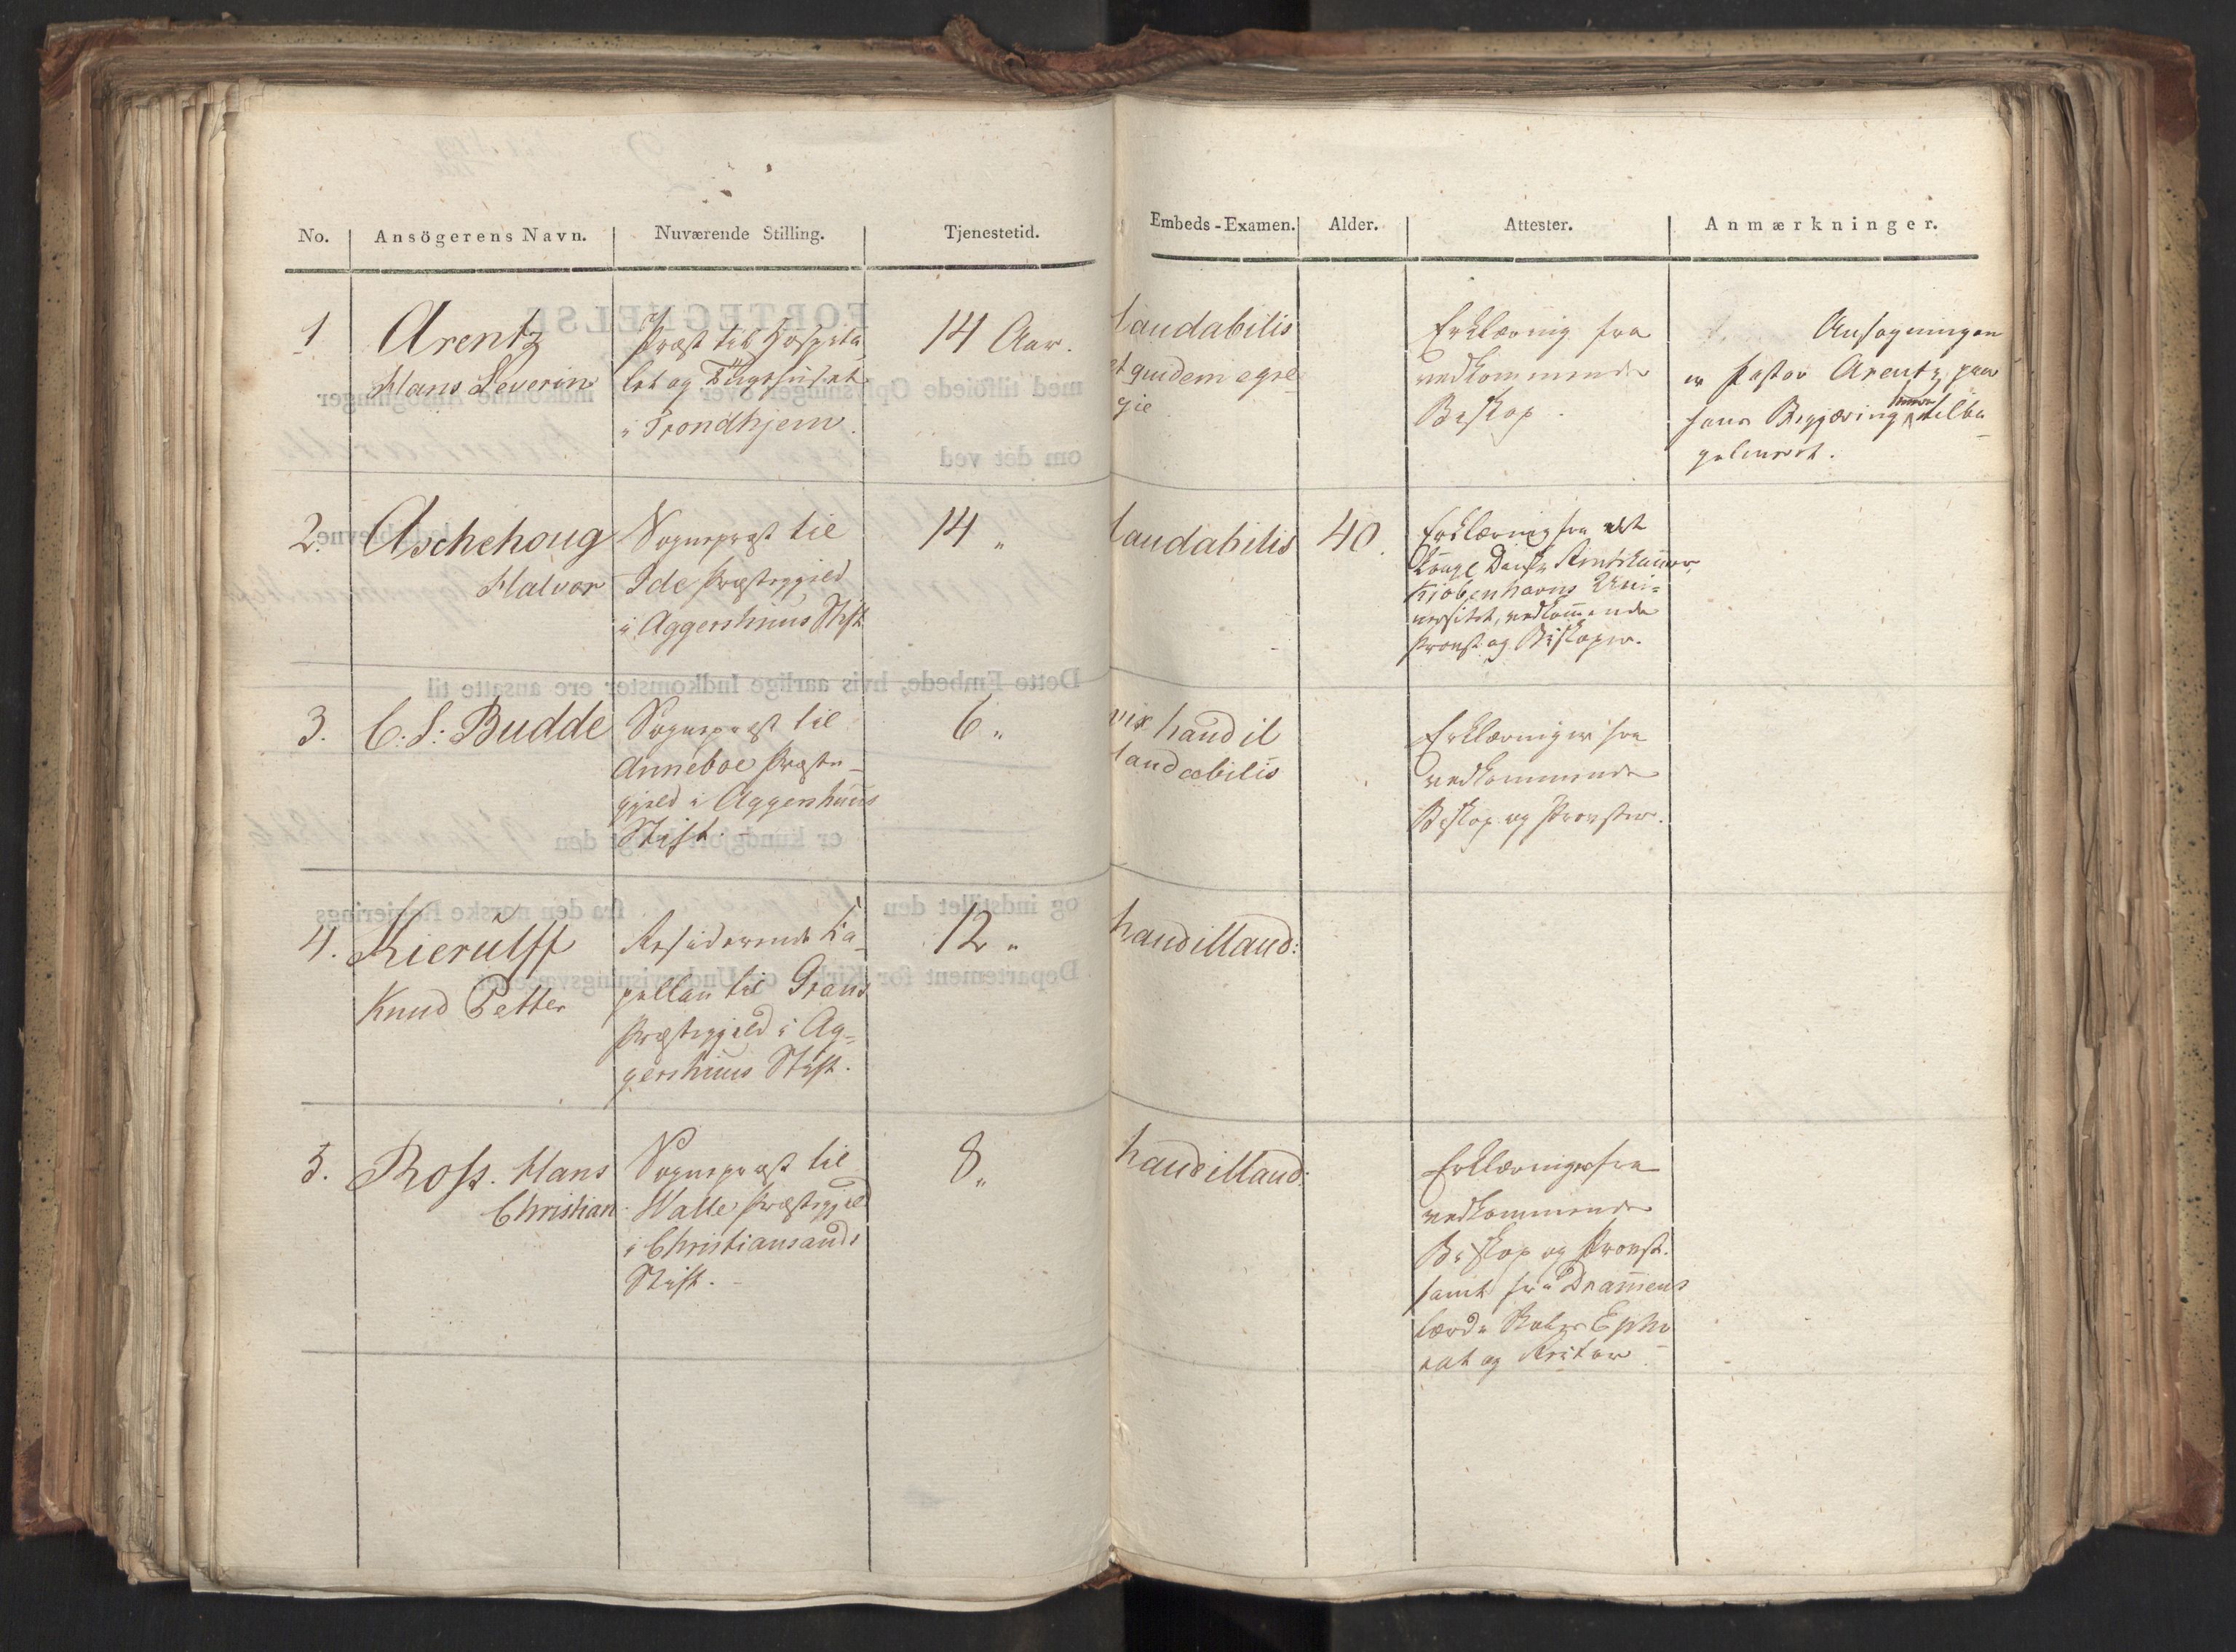 No. Ansögerens Navn. Nuværende Stilling. Tjenestetid. Embeds-Examen. Alder. Attester. Anmærkninger.
1
Arentz
Hans Severin
Præst til Hospita
let og Tugthuset
i Trondhjem.
14 Aar.
laudabilis
et quidem egre
gie
Erklæring fra
vedkommende
Biskop.
Ansøgningen
er Pastor Arentz paa
hans Begjæring tilba
geleveret.
2.
Aschehoug
Halvor
Sognepræst til
Ide Præstegjeld
i Aggershuus Stift
14 "
laudabilis
40.
Erklæring fra det
Kongl Danske Rentekammer,
Kjøbenhavns Uni=
versitet, vedkommende
Provst og Biskoper.
3.
C. S: Budde
Sognepræst til
Anneboe Præste-
gjeld i Aggershuus
Stift. -
6 "
vix haud il
laudabilis
Erklæringer fra
vedkommende
Biskop og Provster.
4.
Kierulff
Knud Petter
Residerende Ka-
pellan til Grans
Præstegjeld i Ag=
gershuus Stift.
12 "
haud illaud:
5.
Ross. Hans
Christian
Sognepræst til
Walle Præstegjeld
i Christiansands
Stift. -
8 "
haud illaud:
Erklæringer fra
vedkommende
Biskop og Provst.
samt fra Drammens
lærde Skoles Epho
rat og Rektor